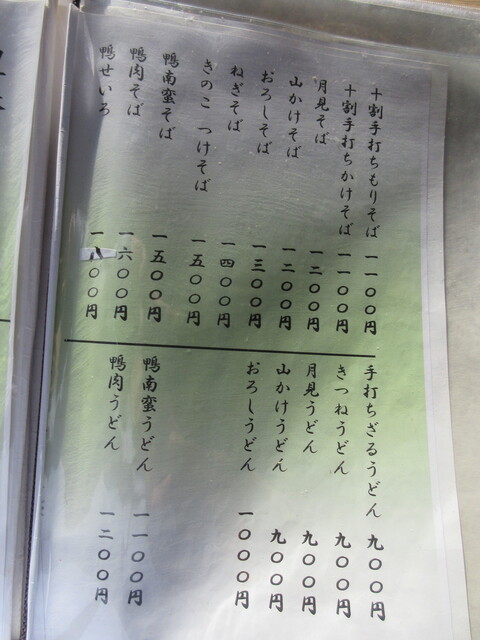 十割手打ちもりそば 一一〇〇円
十割手打ちかけそば 一一〇〇円
月見そば 一二〇〇円
山かけそば 一二〇〇円
おろしそば 一三〇〇円
ねぎそば 一四〇〇円
きのこ つけそば 一五〇〇円
鴨南蛮そば 一五〇〇円
鴨肉そば 一六〇〇円
鴨せいろ 一八〇〇円
手打ちざるうどん 九〇〇円
きつねうどん 九〇〇円
月見うどん 九〇〇円
山かけうどん 九〇〇円
おろしうどん 一〇〇〇円
鴨南蛮うどん 一一〇〇円
鴨肉うどん 一二〇〇円